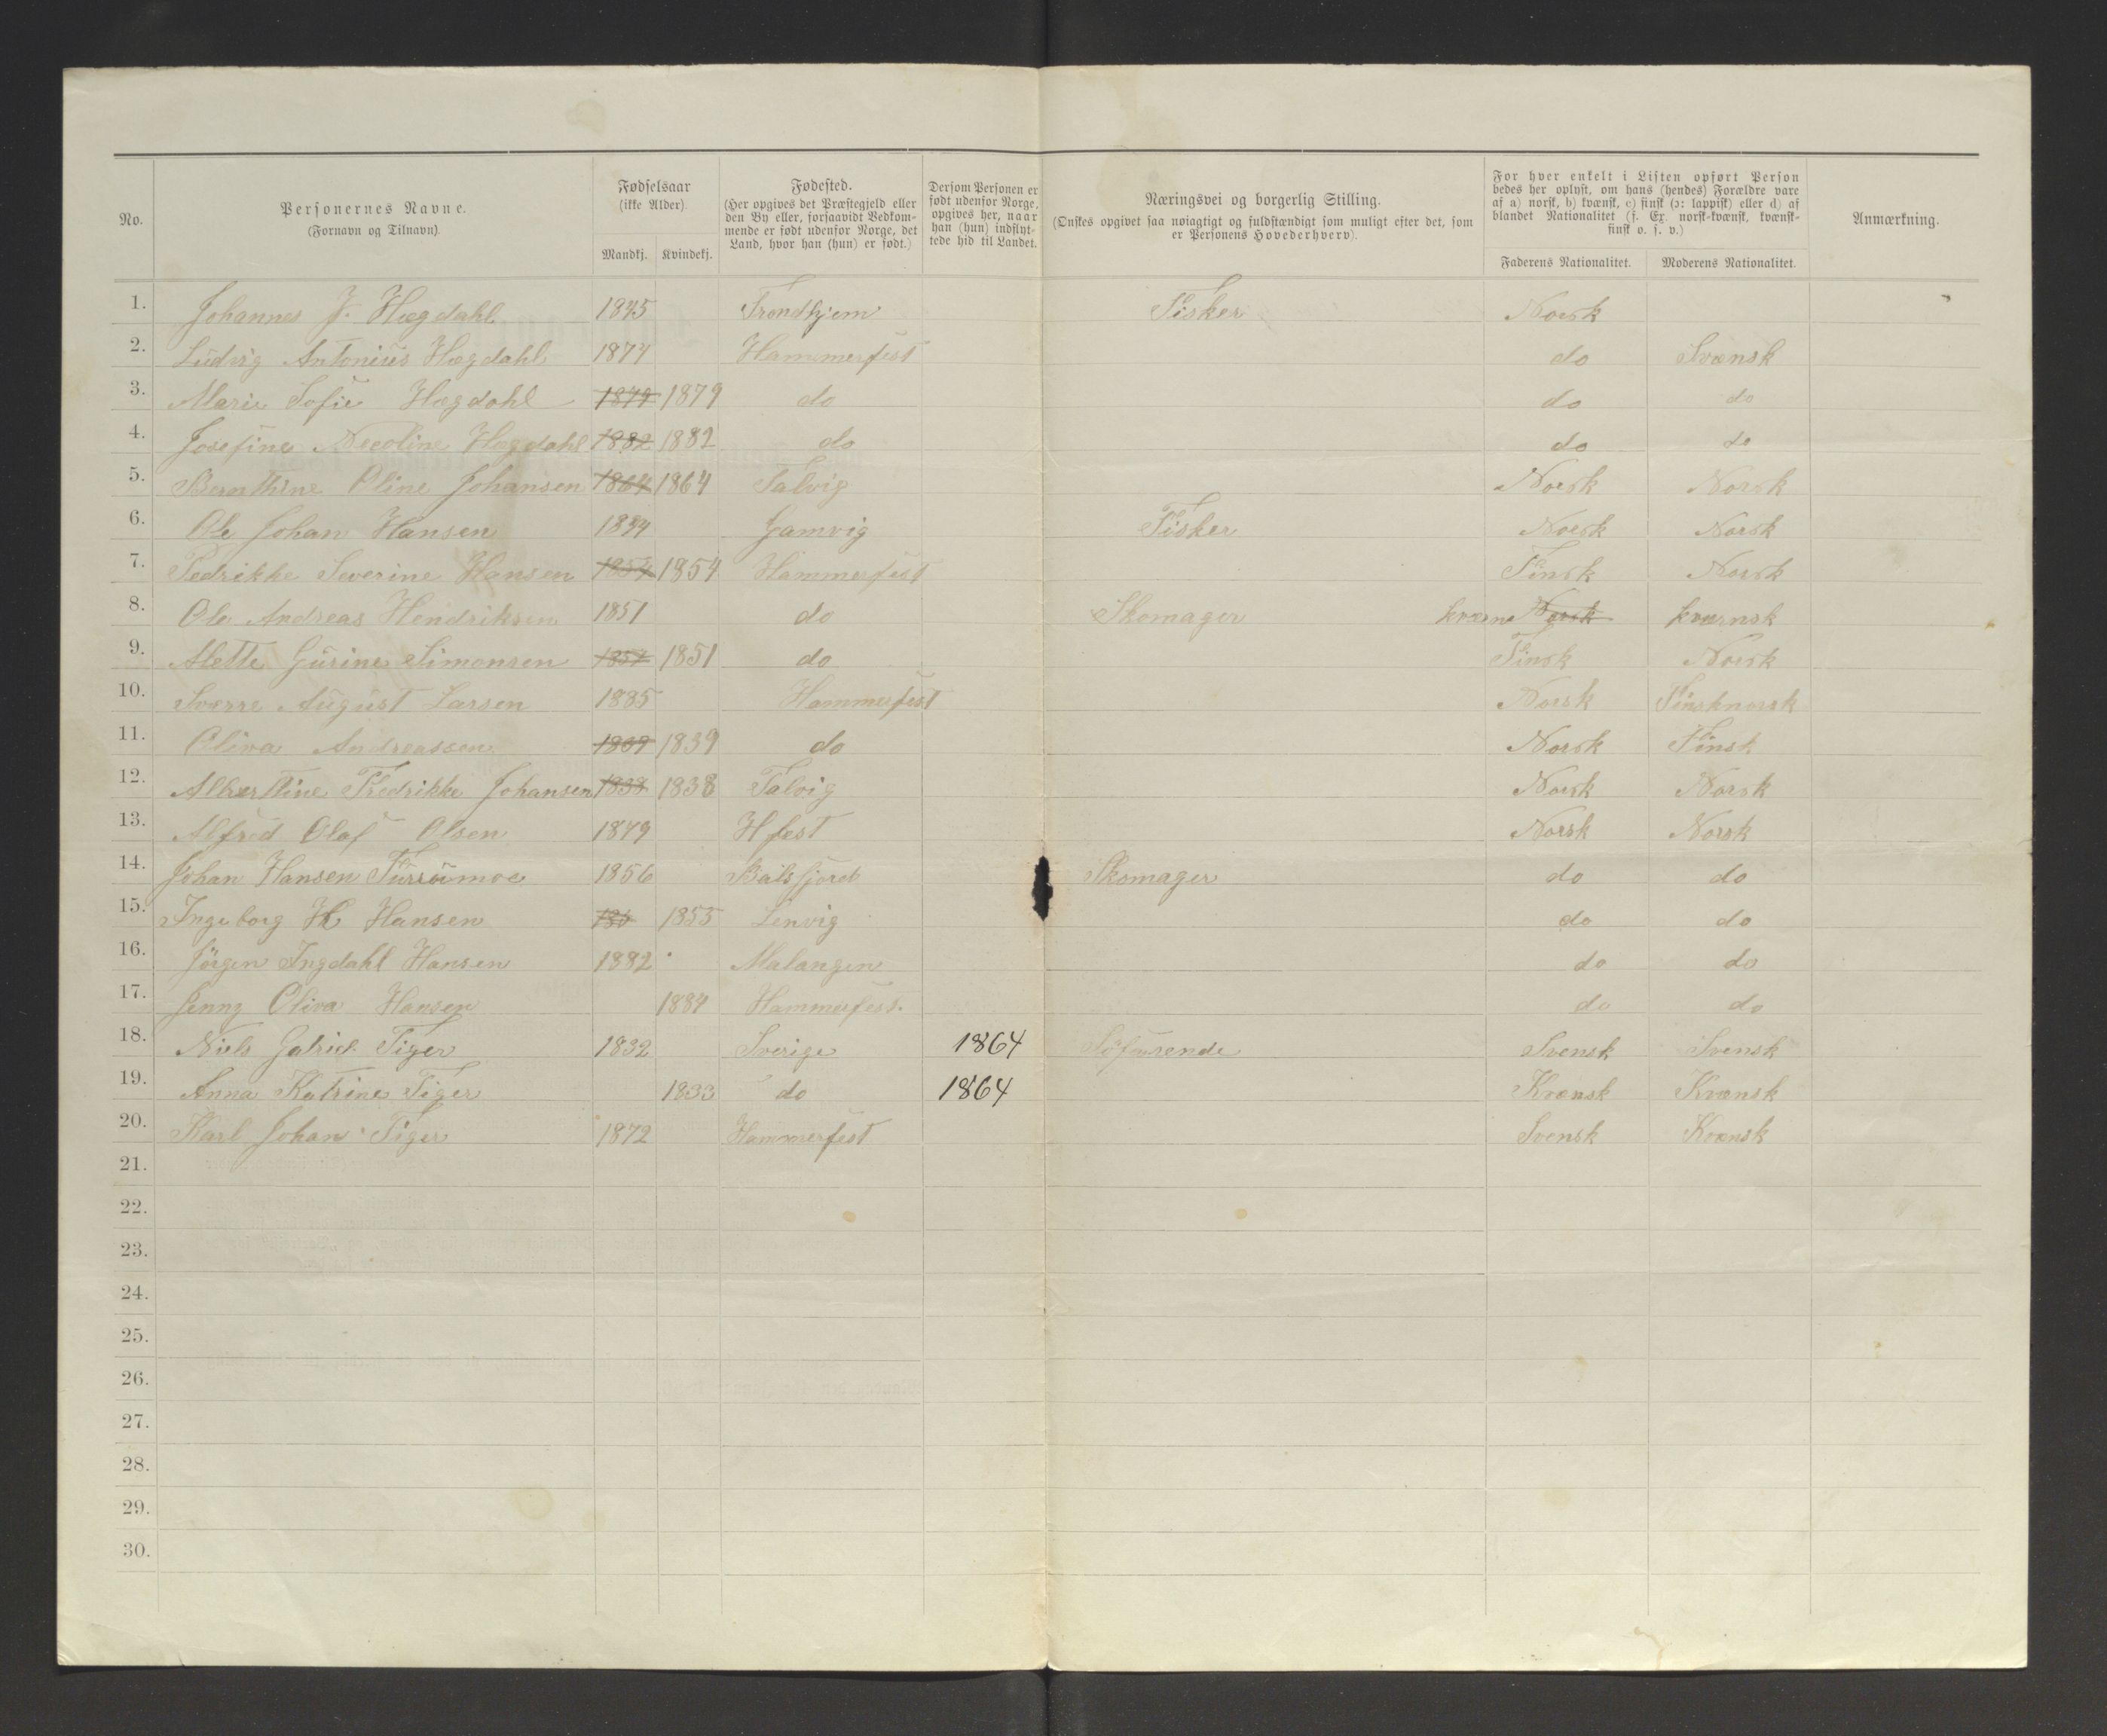 No.
Personernes Navne.
(Fornavn og Tilnavn).
Fødselsaar
(ikke Alder).
Mandkj. Kvindekj.
Fødested.
(Her opgives det Præstegjeld eller
den By eller, forsaavidt Vedkom-
mende er født udenfor Norge, det
Land, hvor han (hun) er født.)
Dersom Personen er
født udenfor Norge,
opgives her, naar
han (hun) indflyt-
tede hid til Landet.
Næringsvei og borgerlig Stilling.
(Ønskes opgivet saa nøiagtigt og fuldstændigt som muligt efter det, som
er Personens Hovederhverv).
For hver enkelt i Listen opført Person
bedes her oplyst, om hans (hendes) Forældre vare
af a) norsk, b) kvænsk, c) finsk (ɔ: lappisk) eller d) af
blandet Nationalitet (f. Ex. norsk-kvænsk, kvænsk-
finsk o. s. v.)
Faderens Nationalitet. Moderens Nationalitet.
Anmærkning.
1. Johannes J. Hægdahl 1845 Trondhjem Fisker Norsk
2. Ludvig Antonius Hægdahl 1877 Hammerfest do Svænsk
3. Marie Sofie Hægdahl 1879 1879 do do do
4. Josefine Hægdahl 1882 1882 do do do
5. Bernthine Oline Johansen 1864 1864 Talvig Norsk Norsk
6. Ole Johan Hansen 1834 Gamvig Fisker Norsk Norsk
7. Fedrikke Severine Hansen 1854 1854 Hammerfest Finsk Norsk
8. Ole Andreas Hendriksen 1851 do Skomager kvæns Norsk kvænsk
9. Alette Gurine Simonsen 1851 1851 do Finsk Norsk
10. Sverre August Larsen 1885 Hammerfest Norsk Finsknorsk
11. Oliva Andreassen 1839 1839 do Norsk Finsk
12. Alberttine Fredrikke Johansen 1838 1838 Talvig Norsk Norsk
13. Alfred Olaf Olsen 1879 Hfest Norsk Norsk
14. Johan Hansen Furrumoe 1856 Balsfjord Skomager do do
15. Ingeborg H Hansen 185 1855 Lenvig do do
16. Jörgen Ingdahl Hansen 1882 Malangen do do
17. Jenny Oliva Hansen 1884 Hammerfest. do do
18. Niels Gabriel Tiger 1832 Sverige 1864 Söfarende Svensk Svensk
19. Anna Katrine Tiger 1833 do 1864 Kvænsk Kvænsk
20. Karl Johan Tiger 1872 Hammerfest Svensk Kvænsk
21.
22.
23.
24.
25.
26.
27.
28.
29.
30.